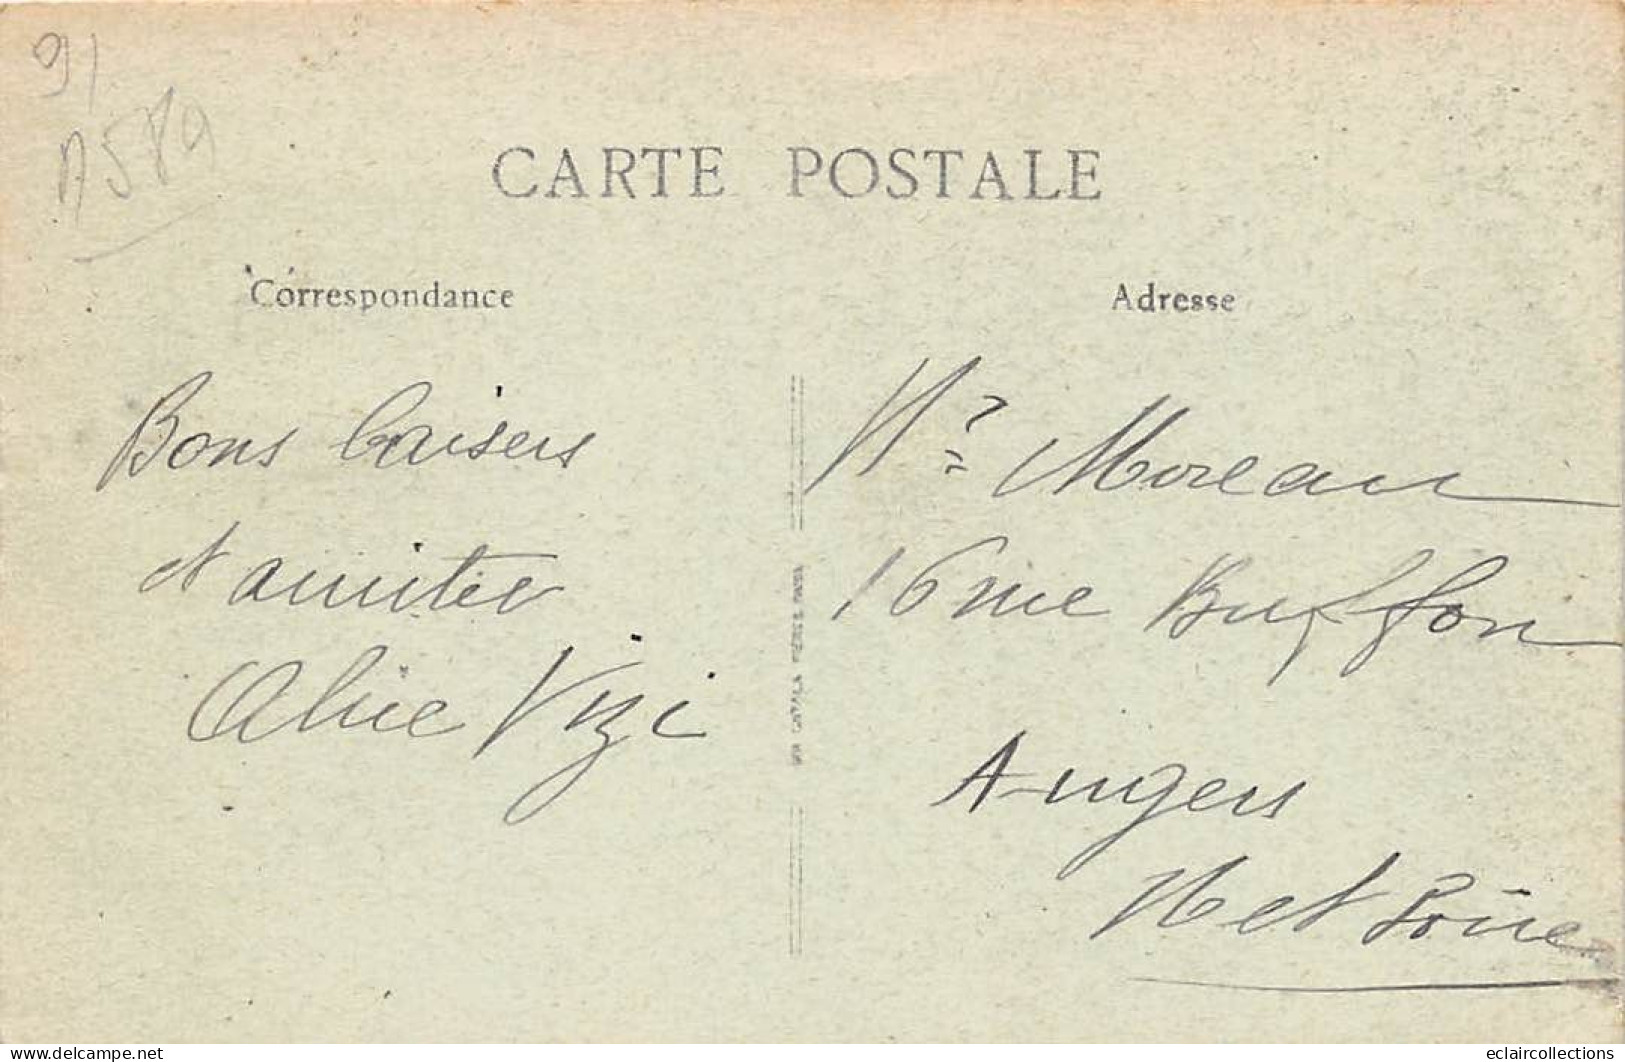 91
A589
CARTE POSTALE
Correspondance
Adresse
Bons baisers
et amitié
Alice Vizi
Mr Moreau
16 rue Buffon
Angers
M et Loire
delcampe.net
eclaircollections